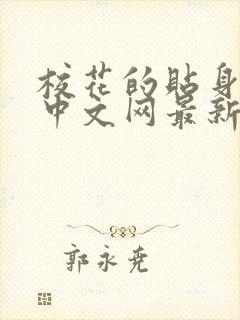 校花的贴身
中文网最新
郭永尧